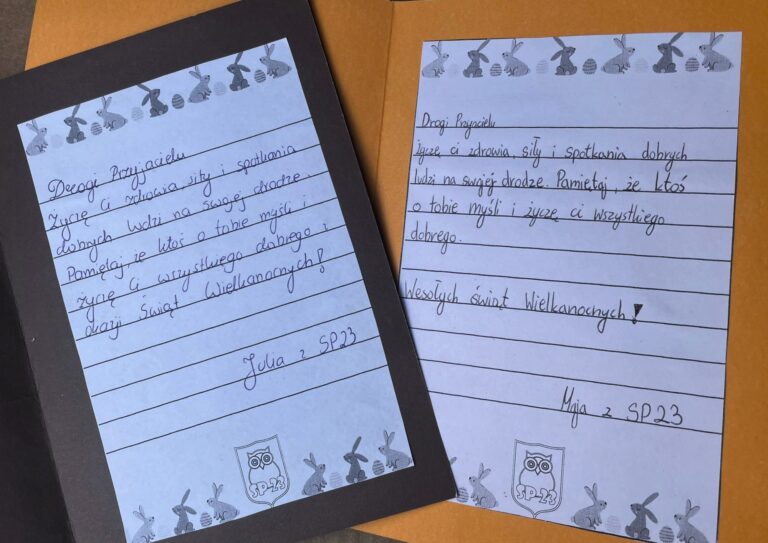 Drogi Przyjacielu
Życię ci zdrowia, siły i spotkania
dobrych ludzi na swojej drodze.
Pamiętaj, że ktoś o tobie myśli i
życię ci wszystkiego dobrego z
okazji Świąt Wielkanocnych!
Julia z SP23
SP-23
Drogi Przyjacielu
życzę ci zdrowia, siły i spotkania dobrych
ludzi na swojej drodze. Pamiętaj, że ktoś
o tobie myśli i życzę ci wszystkiego
dobrego.
Wesołych świąt Wielkanocnych!
Maja z SP23
SP-23